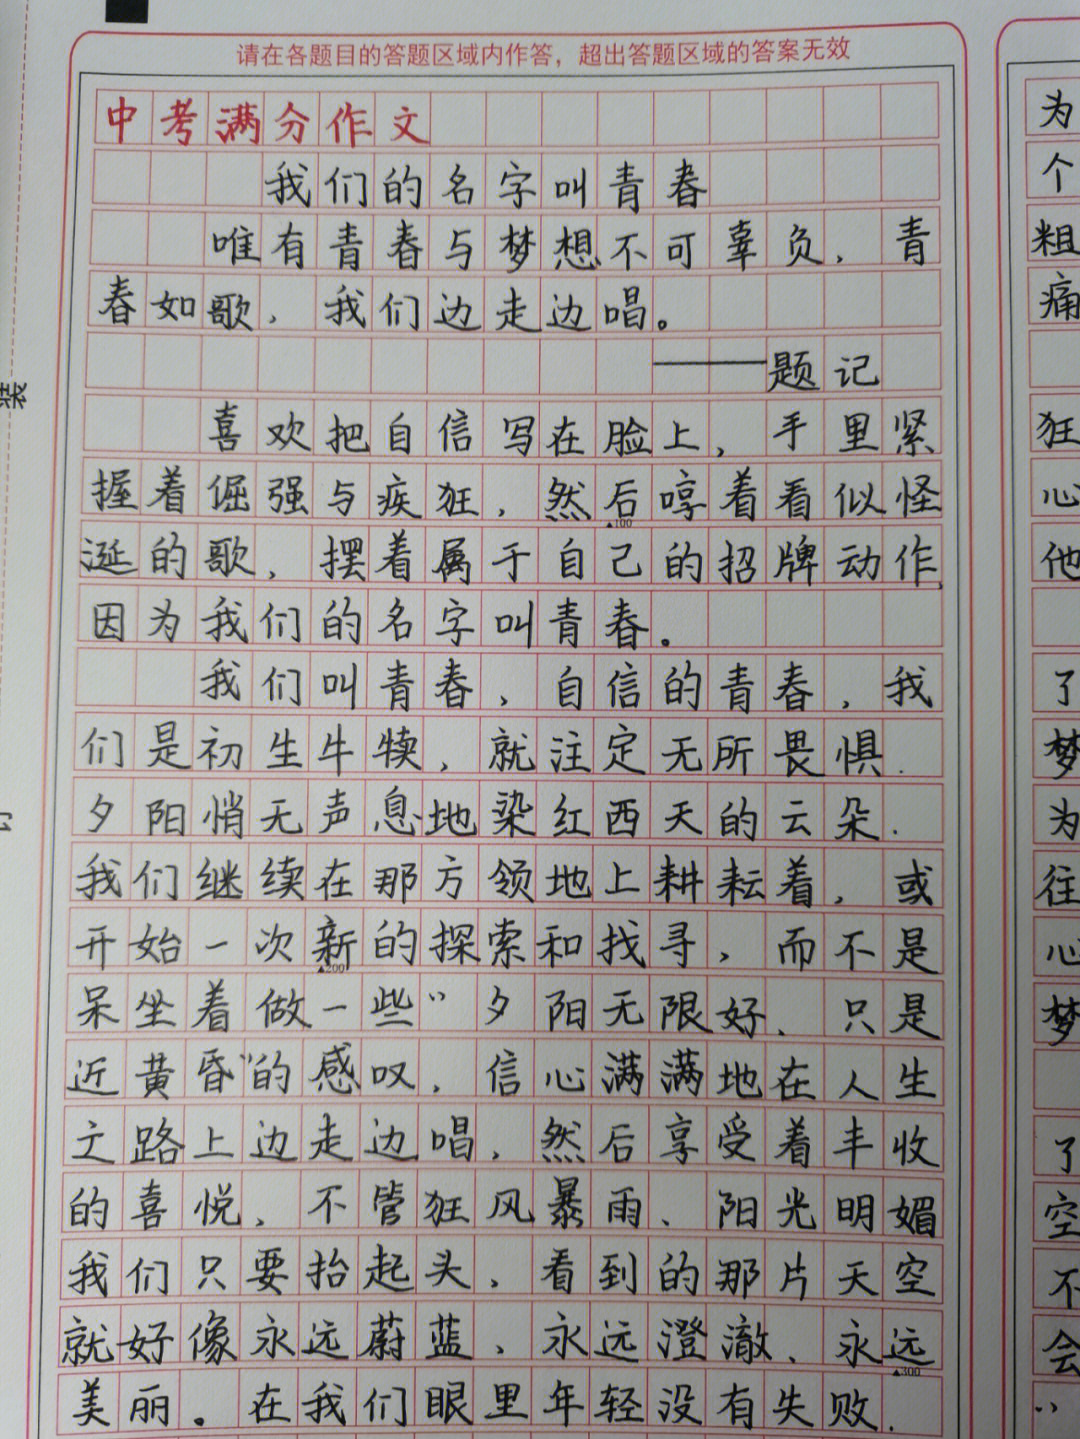 请在各题目的答题区域内作答，超出答题区域的答案无效
中考满分作文
我们的名字叫青春
唯有青春与梦想不可辜负，青
春如歌，我们边走边唱。
——题记
喜欢把自信写在脸上，手里紧
握着倔强与疾狂，然后哼着看似怪
诞的歌，摆着属于自己的招牌动作，
因为我们的名字叫青春。
我们叫青春，自信的青春，我
们是初生牛犊，就注定无所畏惧.
夕阳悄无声息地染红西天的云朵.
我们继续在那方领地上耕耘着，或
开始一次新的探索和找寻，而不是
呆坐着做一些“夕阳无限好、只是
近黄昏”的感叹，信心满满地在人生
之路上边走边唱，然后享受着丰收
的喜悦，不管狂风暴雨、阳光明媚
我们只要抬起头，看到的那片天空
就好像永远蔚蓝、永远澄澈、永远
美丽。在我们眼里年轻没有失败.
▲100
▲200
▲300
装
为
个
粗
痛
狂
心
他
了
梦
为
往
心
梦
了
空
不
会